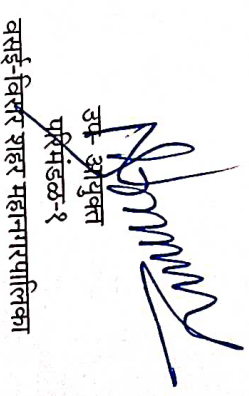 उप- आयुक्त
परिमंडळ-१
वसई-विरार शहर महानगरपालिका